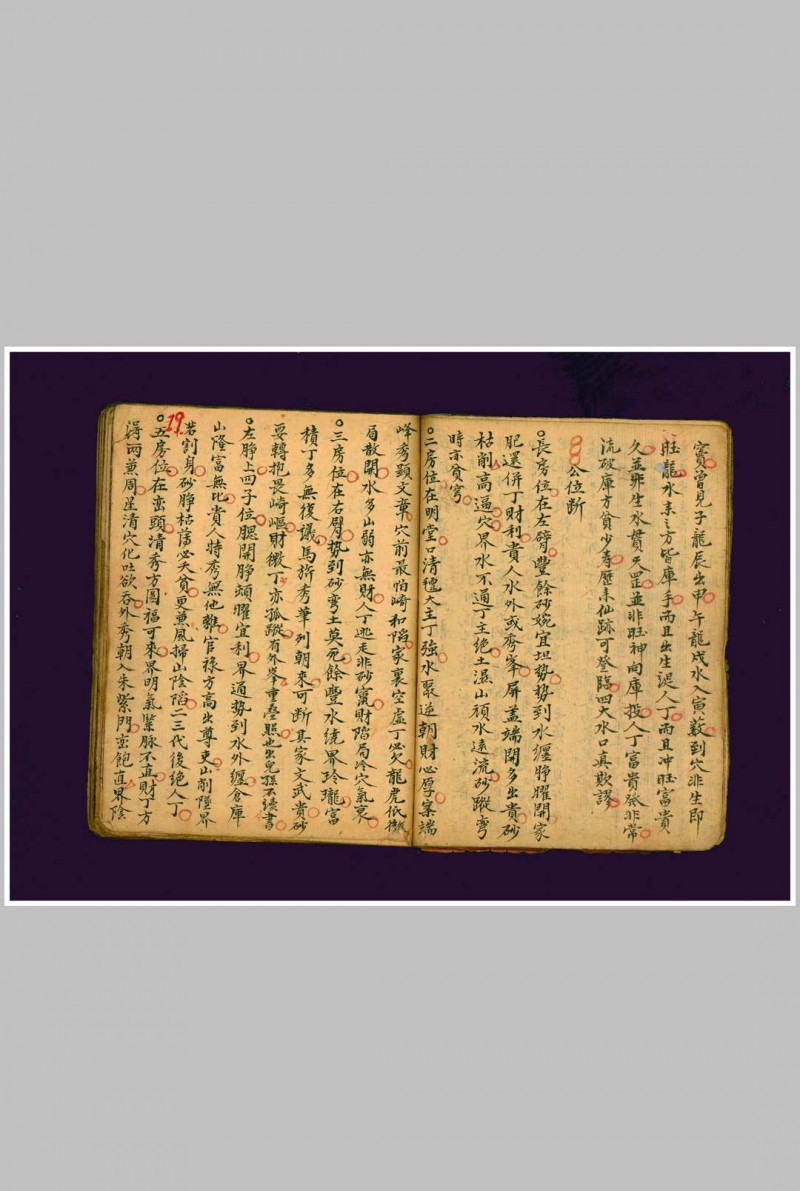 竇曾見子龍辰出申午龍戌水入寅藪到穴非生即
旺龍水來之方皆庫手而且出生涀人丁而且冲旺富貴
久並非生水貫天罡並非旺神向庫投人丁富貴發非常
流破庫方貧少壽歷來仙跡可登臨四大水口真欺謬
公位斷
長房位在左臂豐餘砂婉宜坦勢勢到水纏睁曜開家
肥還併丁財利貴人水外或秀峯屏盖端開多出貴砂
枯削高逼穴界水不通丁主絶土濕山頑水遠流砂蹤彎
時亦貧窮
二房位在明堂口清穩大主丁強水聚逆朝財必厚案端
峰秀顕文章穴前最怕崎和陷家裏空虛丁必欠龍虎低微
局散開水多山弱亦無財人丁逃走非砂竄財陷局冷穴氣衰
三房位在右臂勢到砂彎土莫死餘豐水繞界玲瓏富
積丁多無後議馬旂秀筆列朝來可斷其家文武貴砂
要轉抱畏崎嶇財微丁亦孤蹤有外峯重叠照也出兒孫不讀書
左睁上四子位腮開睁頞曜宜利界通勢到水外纏倉庫
山隆富無比貴人特秀無他雜官祿方高出尊更山削隆界
若割身砂睁枯蕩必夭貧更兼風掃山陰陷二三代後絶人丁
19
五房位在巒頭清秀方圓福可來界明氣緊脉不直財丁方
得兩兼周星清穴化吐欲吞外秀朝入朱紫門巒飽直界陰